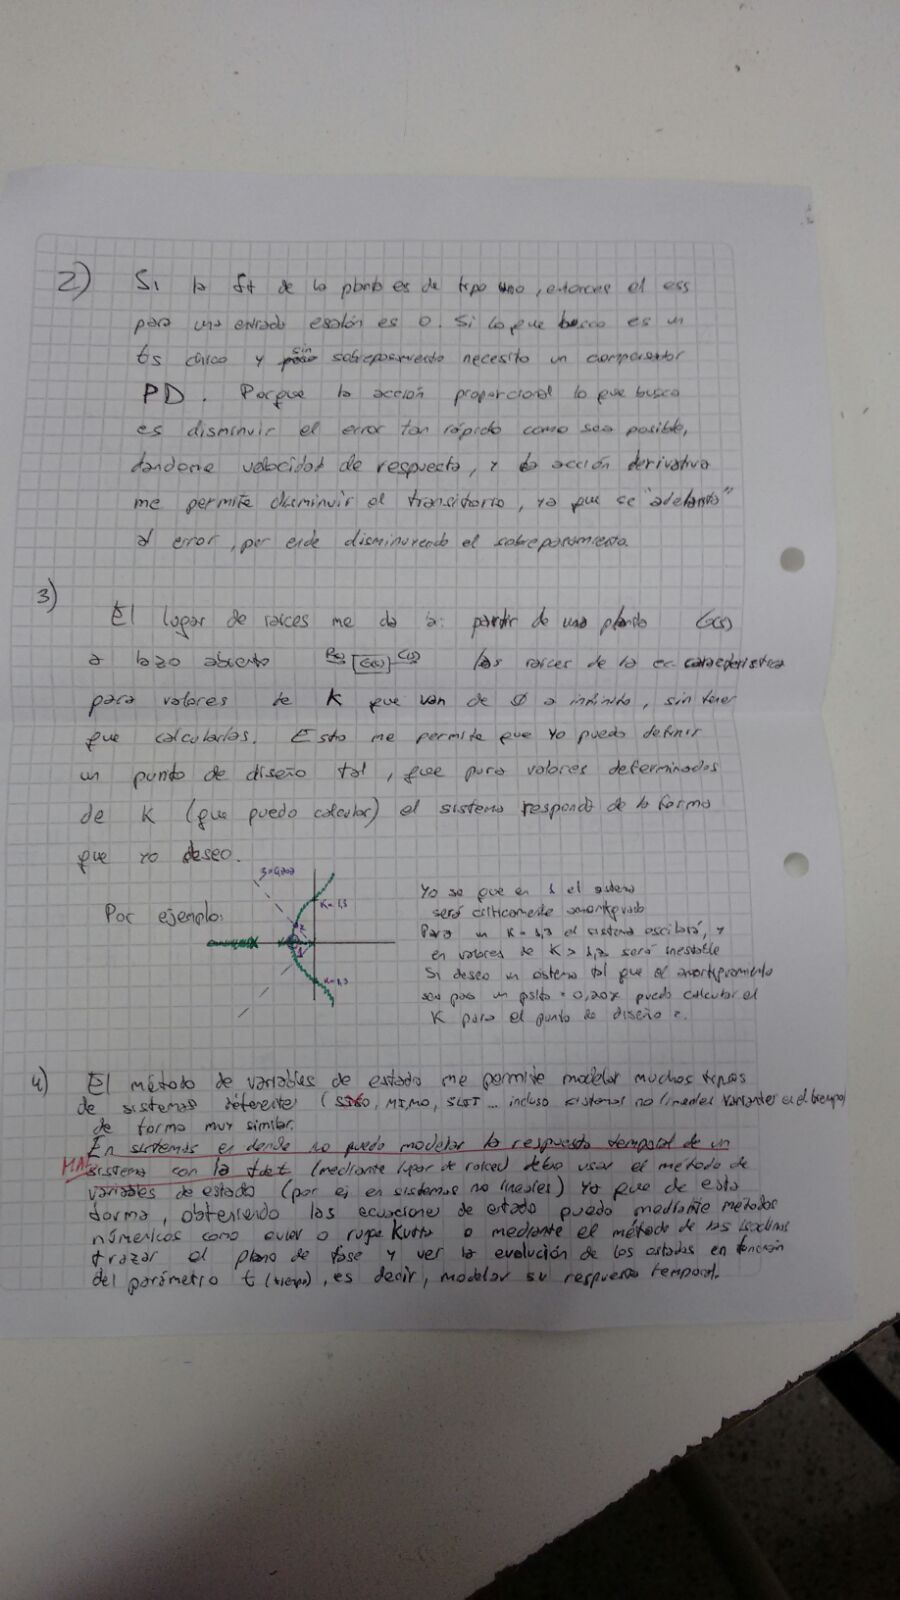 2) Si la ft de la planta es de tipo uno, entonces el ess
para una entrada escalón es 0. Si lo que busco es un
ts chico y sin sobrepasamiento necesito un compensador
PD. Porque la acción proporcional lo que busca
es disminuir el error tan rápido como sea posible,
dandome velocidad de respuesta, y la acción derivativa
me permite disminuir el transitorio, ya que se "adelanta"
al error, por ende disminuyendo el sobrepasamiento.
3)
El lugar de raíces me da a partir de una planta G(s)
a lazo abierto R(s) G(s) C(s) las raíces de la ec. característica
para valores de K que van de Ø a infinito, sin tener
que calcularlas. Esto me permite que yo pueda definir
un punto de diseño tal, que para valores determinados
de K (que puedo calcular) el sistema responda de la forma
que yo deseo.
Por ejemplo:
K=1,3
2
1
K=1,3
Yo se que en 1 el sistema
será críticamente amortiguado
Para un K=1,3 el sistema oscilará, y
en valores de K > 1,3 será inestable
Si deseo un sistema tal que el amortiguamiento
sea para un psita = 0,707 puedo calcular el
K para el punto de diseño 2.
4) El método de variables de estado me permite modelar muchos tipos
de sistemas (SISO, MIMO, SLIT... incluso sistemas no lineales variantes en el tiempo)
de forma muy similar.
En sistemas en donde no puedo modelar la respuesta temporal de un
MAL
sistema con la fdet (mediante lugar de raíces) debo usar el método de
variables de estado (por ej en sistemas no lineales) ya que de esta
forma, obteniendo las ecuaciones de estado puedo mediante métodos
númericos como euler o ruge Kutta o mediante el método de las isoclinas
trazar el plano de fase y ver la evolución de los estados en función
del parámetro t (tiempo), es decir, modelar su respuesta temporal.